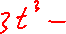 3t³ −